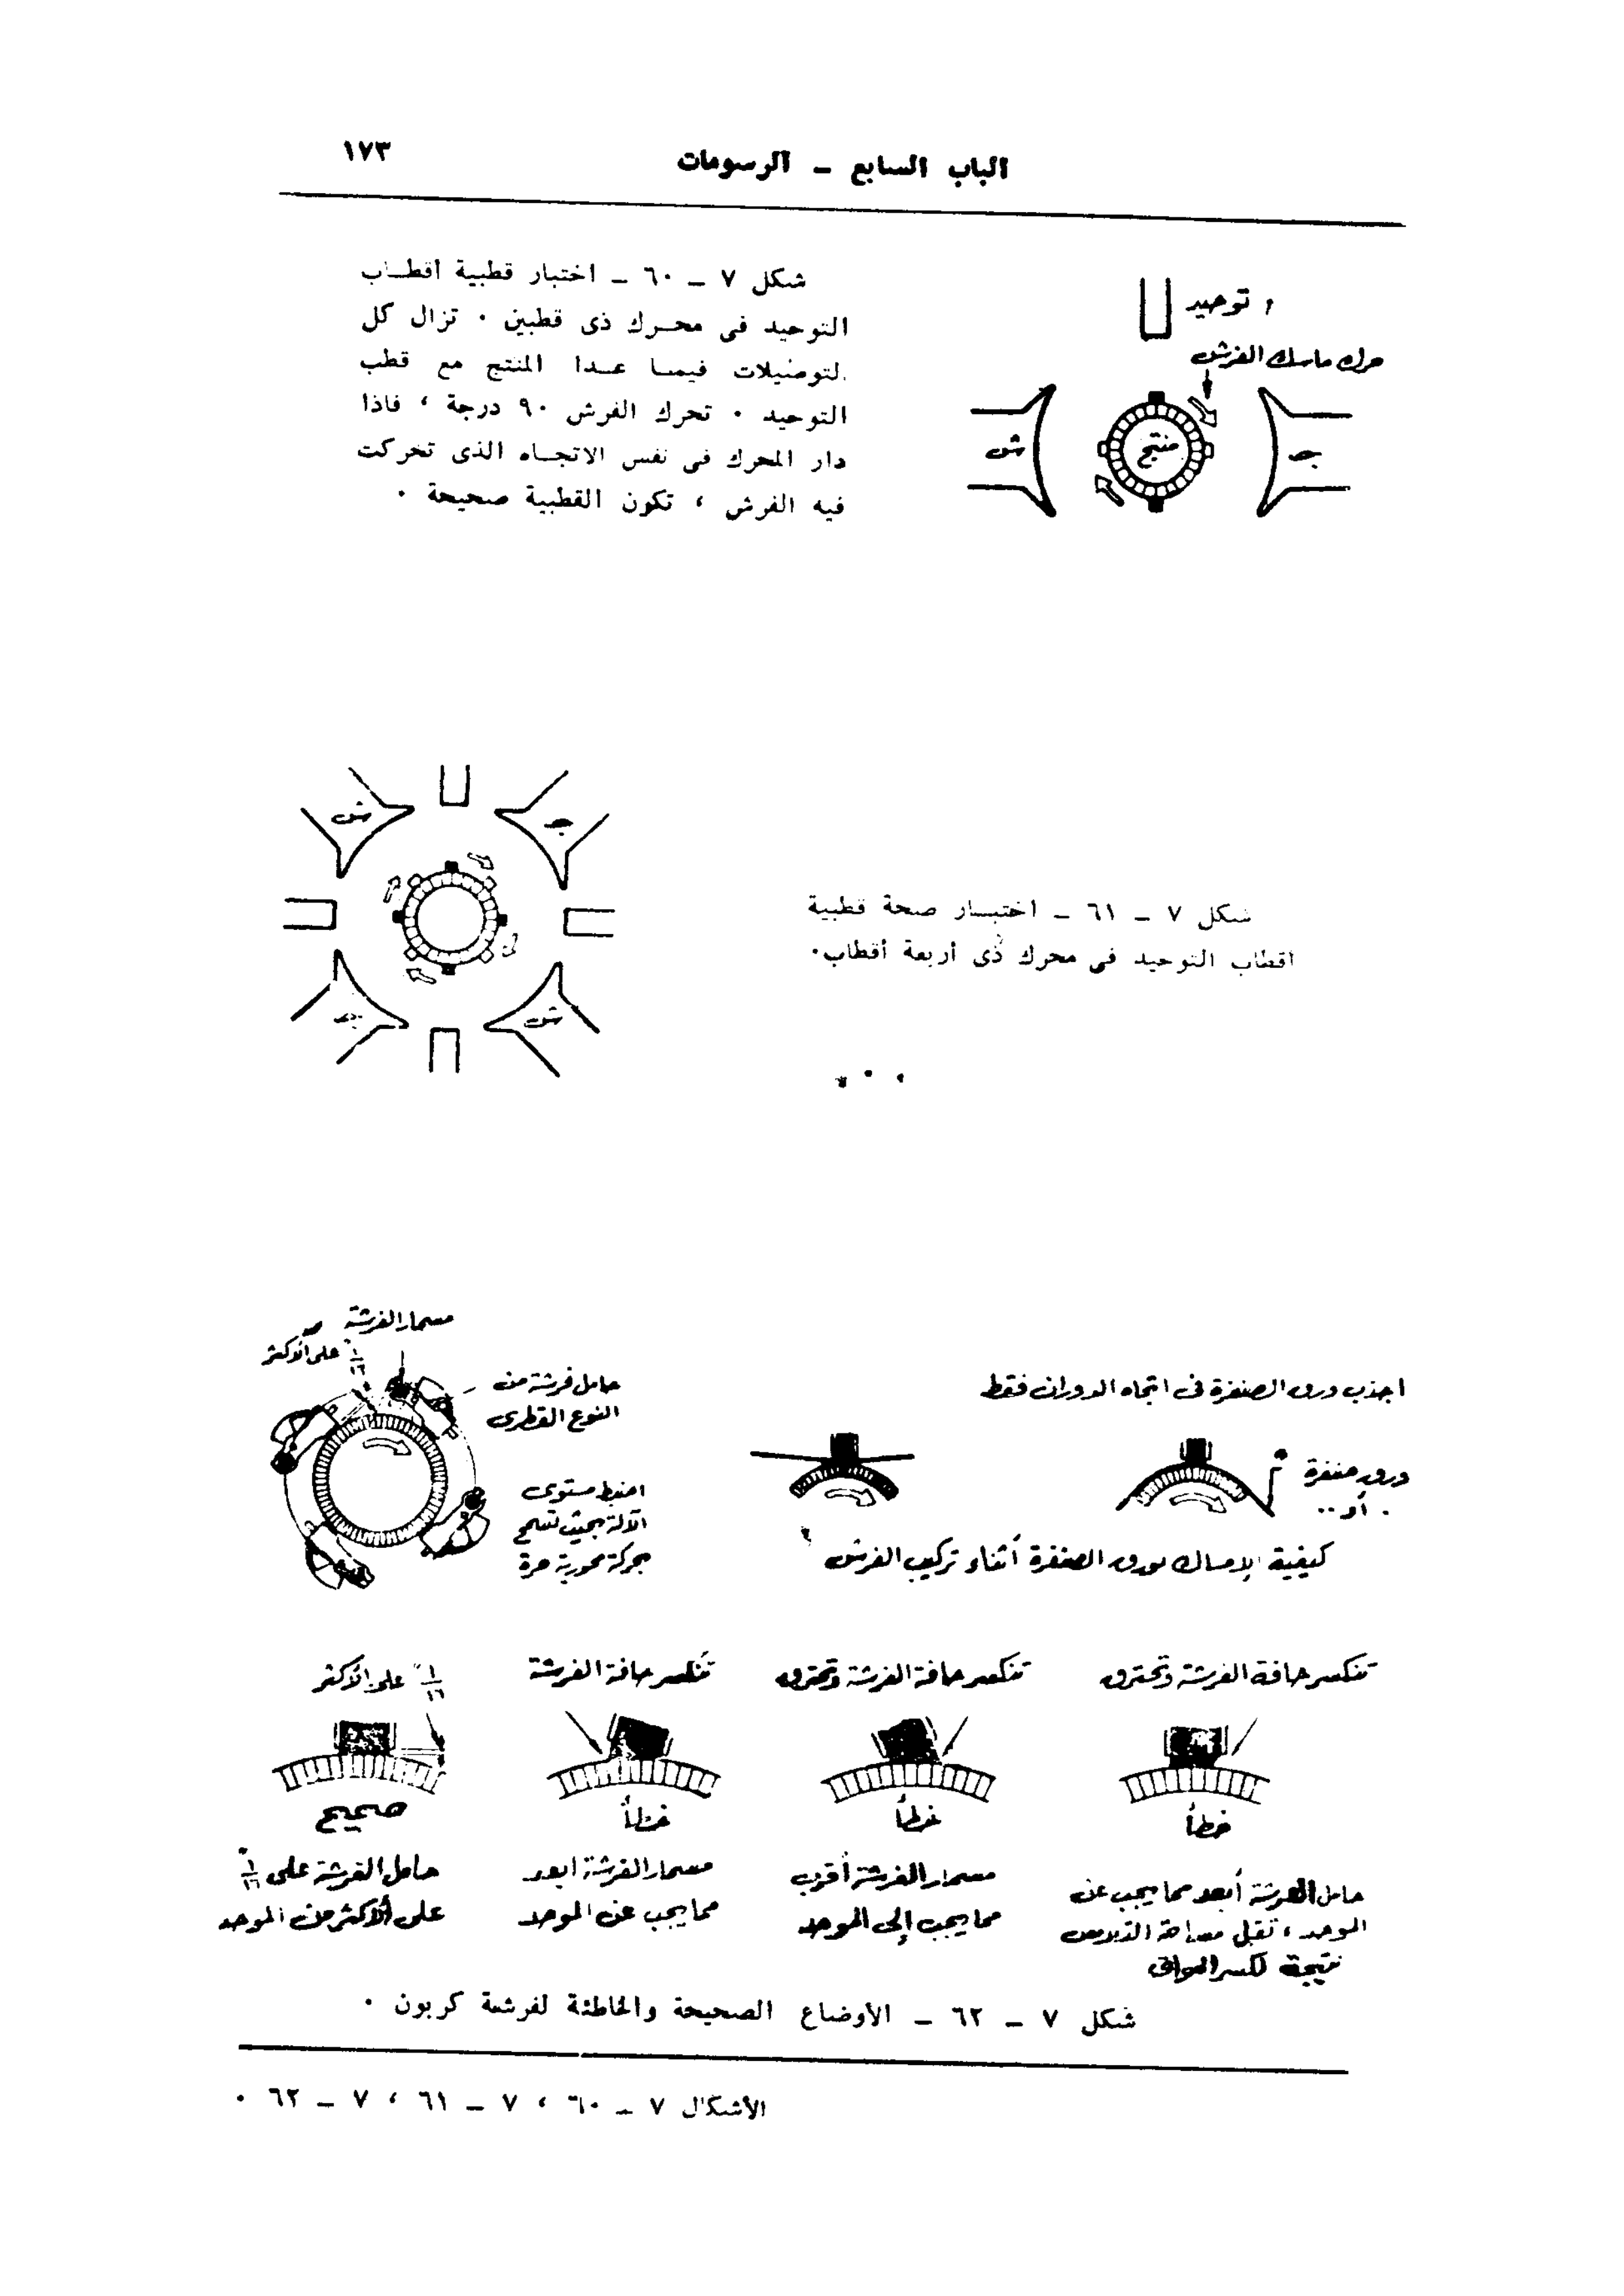 الباب السابع ــ الرسومات
١٧٣
شكل ٧ ــ ٦٠ ــ اختبار قطبية أقطــاب
التوحيد فى محــرك ذى قطبين ٠ تزال كل
لتوصيلات فيمــا عــدا المنتج مع قطب
التوحيد ٠ تحرك الفرش ٩٠ درجة ، فاذا
دار المحرك فى نفس الاتجــاه الذى تحركت
فيه الفرش ، تكون القطبية صحيحة ٠
توحيد
حرك ماسك الفرش
ش
منتج
جـ
ش
جـ
جـ
ش
شكل ٧ ــ ٦١ ــ اختبــار صحة قطبية
أقطاب التوحيد فى محرك ذى أربعة أقطاب٠
مسمار الفرشة
١/١٦ً على الأكثر
حامل فرشة من
النوع القطرى
اضبط مستوى
الآلة بحيث تسمح
بحركة محورية حرة
اجذب ورق الصنفرة فى اتجاه الدوران فقط
ورق صنفرة
أو ..
كيفية الإمساك بورق الصنفرة أثناء تركيب الفرش
تنكسر حافة الفرشة وتحترق
تنكسر حافة الفرشة وتحترق
تنكسر حافة الفرشة
١/١٦ً على الأكثر
خطأ
خطأ
خطأ
صحيح
حامل الفرشة أبعد مما يجب عن
الموحد ، تقل مساحة التلامس
نتيجة لكسر الحوافى
مسمار الفرشة أقرب
مما يجب إلى الموحد
مسمار الفرشة ابعد
مما يجب عن الموحد
حامل الفرشة على ١/١٦ً
على الأكثر من الموحد
شكل ٧ ــ ٦٢ ــ الأوضاع الصحيحة والخاطئة لفرشة كربون ٠
الأشكال ٧ ــ ٦٠ ، ٧ ــ ٦١ ، ٧ ــ ٦٢ ٠